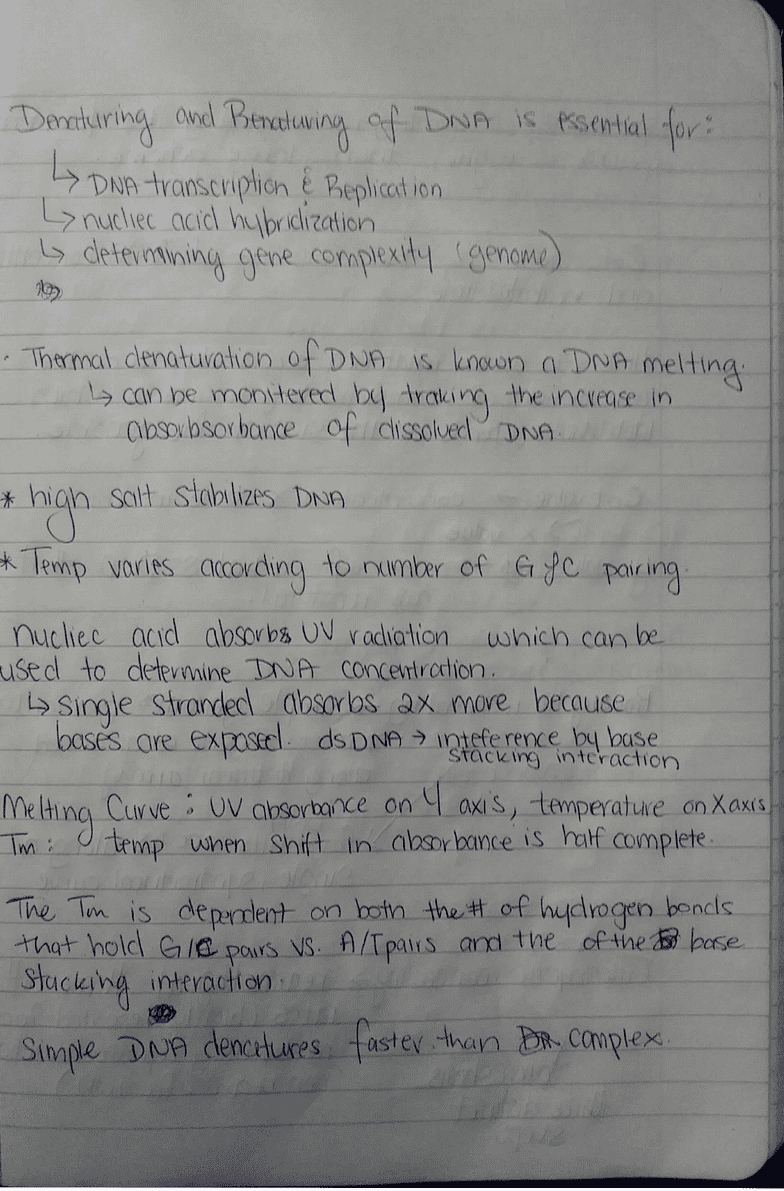 Denaturing and Renaturing of DNA is essential for:
↳ DNA transcription & Replication
↳ nucliec acid hybridization
↳ determining gene complexity (genome)
· Thermal denaturation of DNA is known a DNA melting.
↳ can be monitered by traking the increase in
absorbsorbance of dissolved DNA.
* high salt stabilizes DNA
* Temp varies according to number of G & C pairing.
nucliec acid absorbs UV radiation which can be
used to determine DNA concentration.
↳ single stranded absorbs 2x more because
bases are exposed. dsDNA → inteference by base
stacking interaction
Melting Curve : UV absorbance on Y axis, temperature on X axis
Tm : temp when shift in absorbance is half complete.
The Tm is dependent on both the # of hydrogen bonds
that hold G/C pairs vs. A/T pairs and the of the base
stacking interaction.
Simple DNA denatures faster than complex.